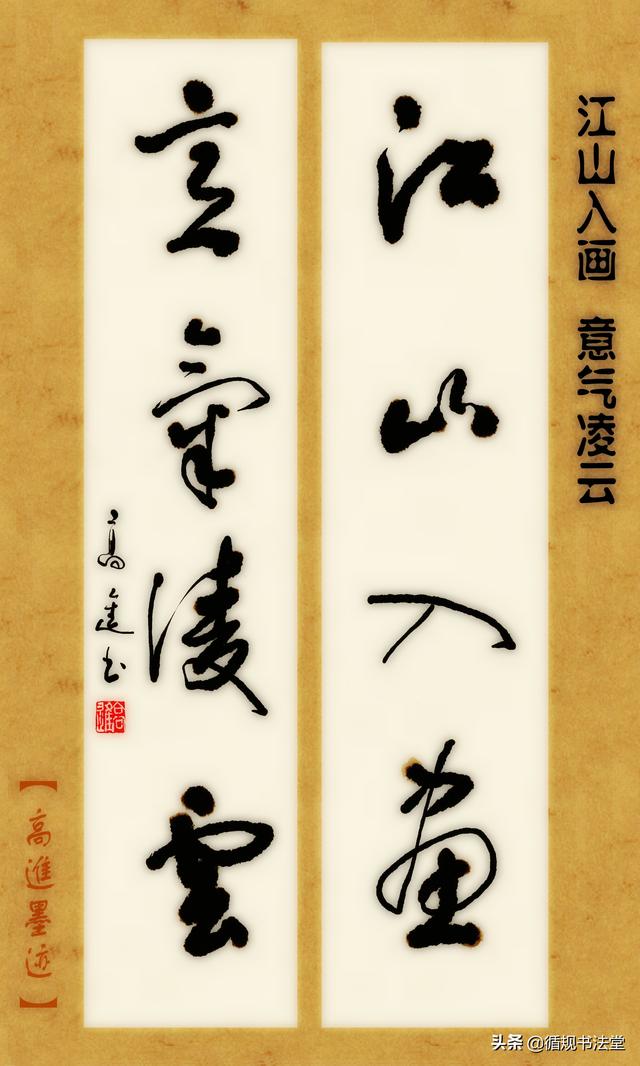 江山入画 意气凌云
江山入畫
意氣凌雲
高進书
高進
【高進墨迹】
头条 @循规书法堂